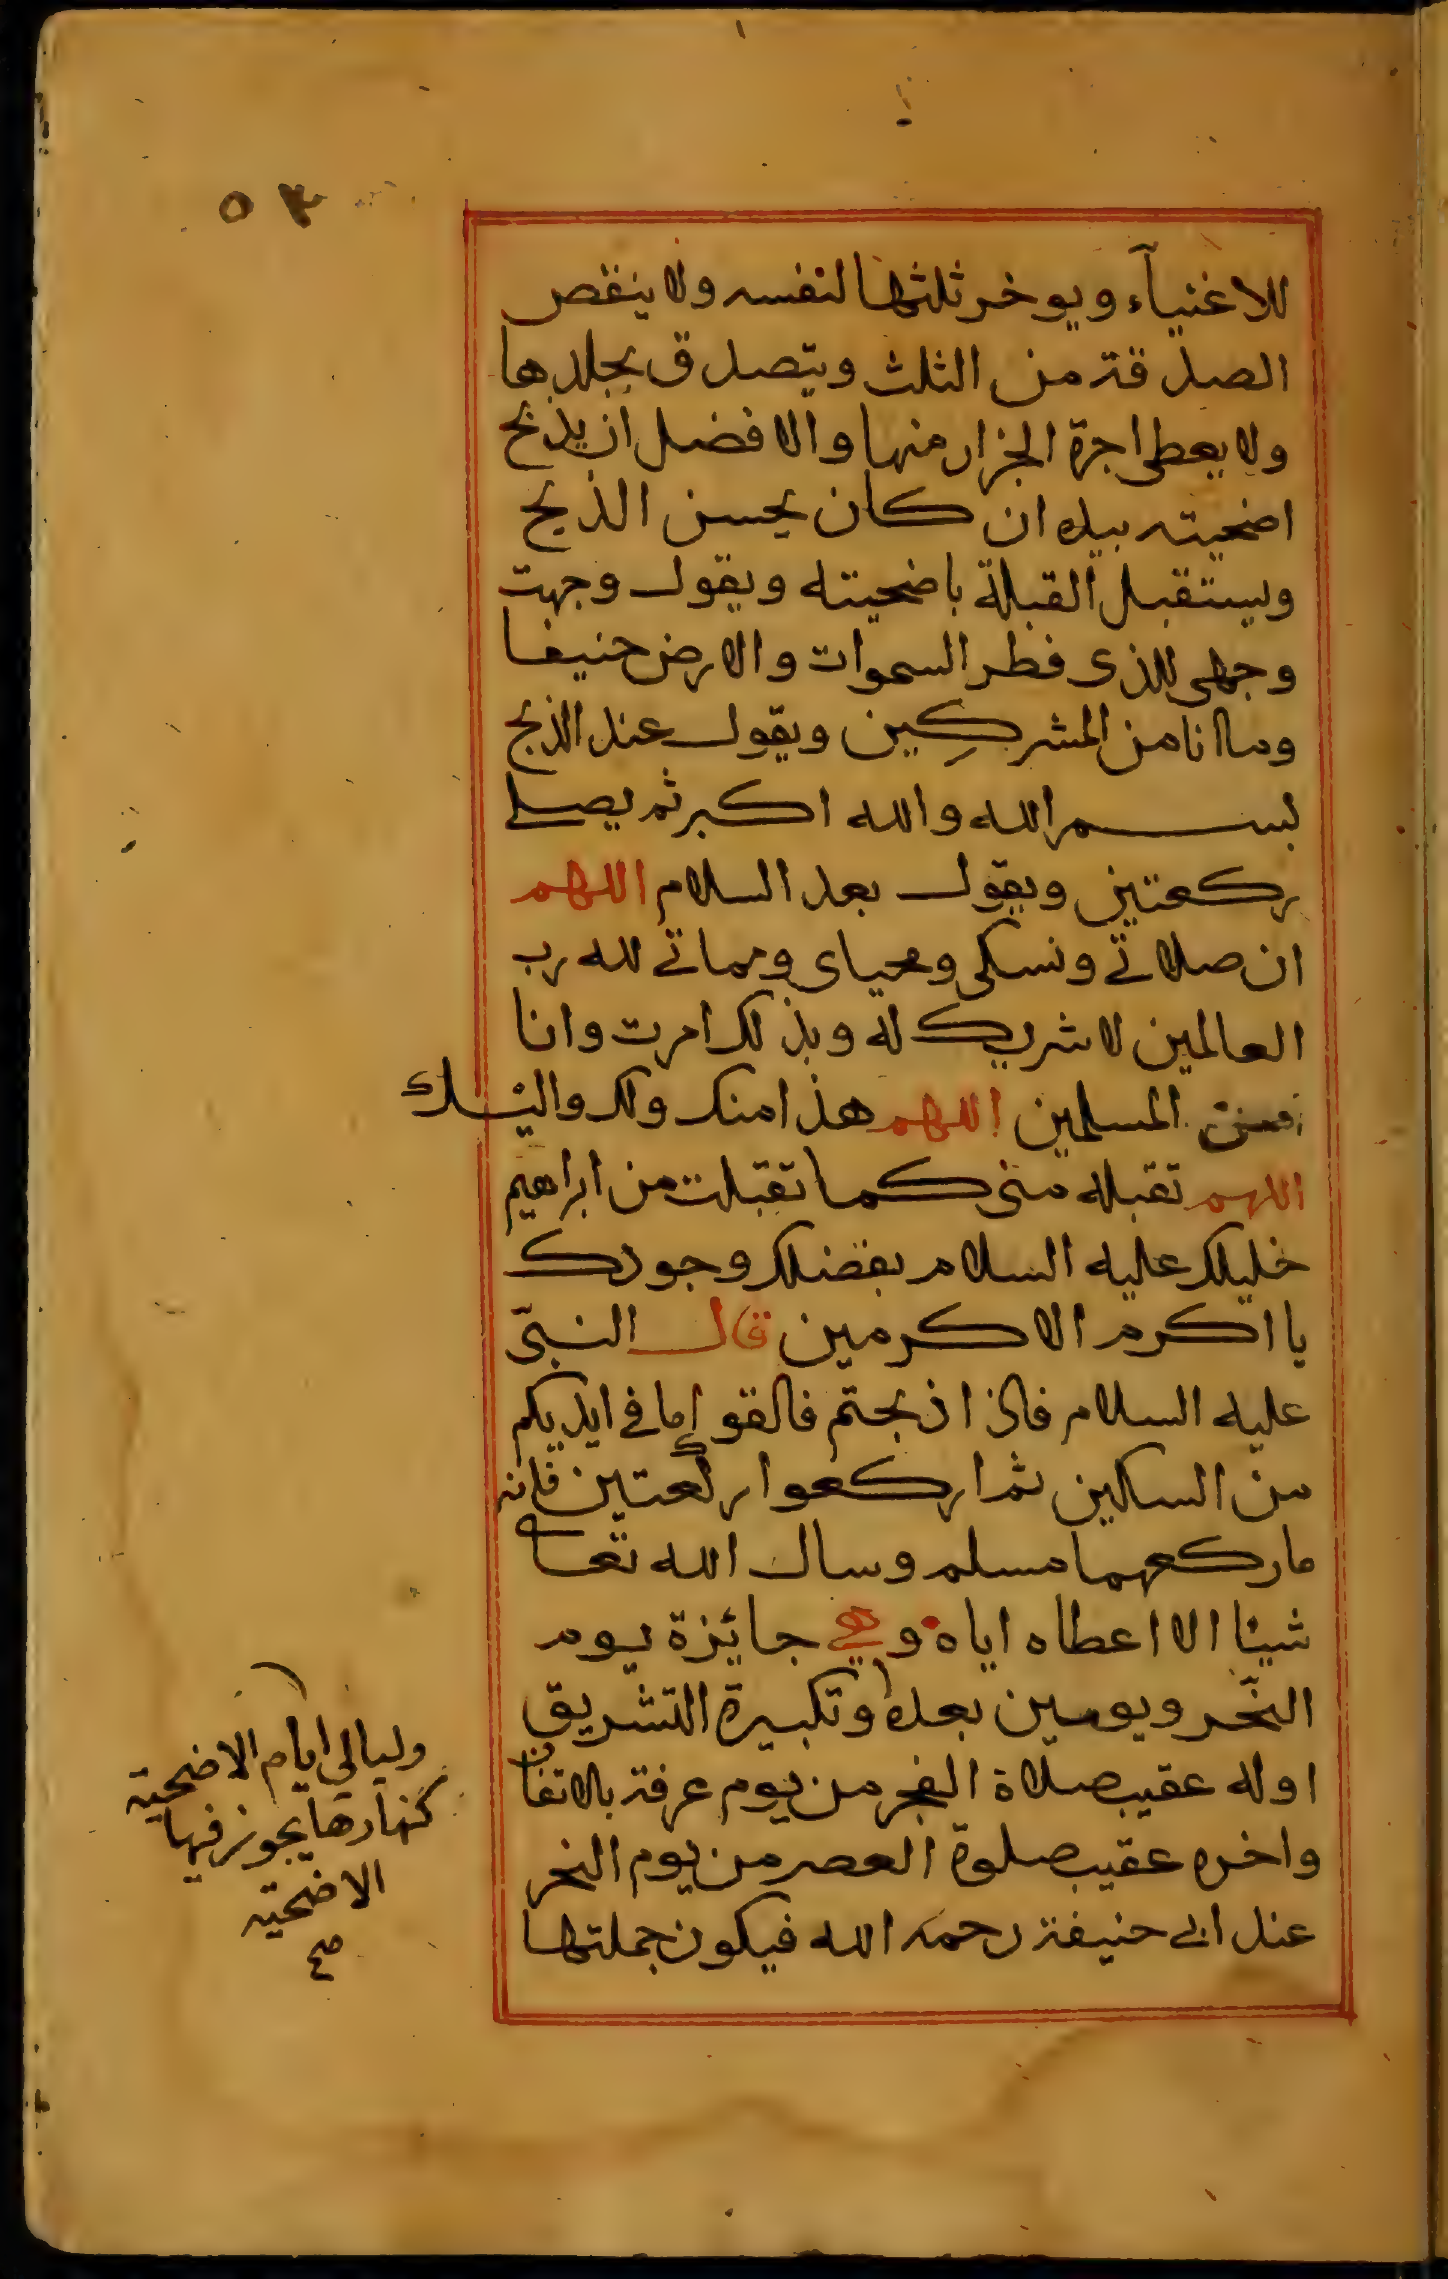 ٥٣
للاغنيآء ويوخر ثلثها لنفسه ولا ينقص
الصدقة من الثلث ويتصدق بجلدها
ولا يعطى اجرة الجزار منها والافضل ان يذبح
اضحيته بيده ان كان يحسن الذبح
ويستقبل القبلة باضحيته ويقول وجهت
وجهى للذى فطر السموات والارض حنيفا
وما انا من المشركين ويقول عند الذبح
بسم الله والله اكبر ثم يصلى
ركعتين ويقول بعد السلام اللهم
ان صلاتى ونسكى ومحياى ومماتى لله رب
العالمين لا شريك له وبذلك امرت وانا
من المسلمين اللهم هذا منك ولك واليك
اللهم تقبله منى كما تقبلت من ابراهيم
خليلك عليه السلام بفضلك وجودك
يا اكرم الاكرمين قال النبىّ
عليه السلام فاذا ذبحتم فالقوا ما فى ايديكم
من السكين ثم اركعوا ركعتين فانه
ما ركعهما مسلم وسال الله تعا
شيئا الا اعطاه اياه وهي جائزة يوم
النّحر ويومين بعده وتكبيرة التشريق
اوله عقيب صلاة الفجر من يوم عرفة بالاتفاق
واخره عقيب صلوة العصر من يوم النحر
عند ابى حنيفة رحمه الله فيكون جملتها
وليالي ايام الاضحية
كنهارها يجوز فيها
الاضحية
صح